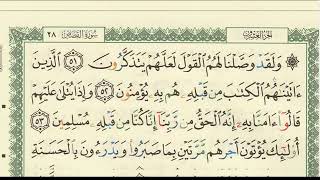 الجزء العشرون سورة القصص ٢٨
۞ وَلَقَدْ وَصَّلْنَا لَهُمُ ٱلْقَوْلَ لَعَلَّهُمْ يَتَذَكَّرُونَ ٥١ ٱلَّذِينَ
ءَاتَيْنَٰهُمُ ٱلْكِتَٰبَ مِن قَبْلِهِۦ هُم بِهِۦ يُؤْمِنُونَ ٥٢ وَإِذَا يُتْلَىٰ عَلَيْهِمْ
قَالُوٓا۟ ءَامَنَّا بِهِۦٓ إِنَّهُ ٱلْحَقُّ مِن رَّبِّنَآ إِنَّا كُنَّا مِن قَبْلِهِۦ مُسْلِمِينَ ٥٣
أُو۟لَٰٓئِكَ يُؤْتَوْنَ أَجْرَهُم مَّرَّتَيْنِ بِمَا صَبَرُوا۟ وَيَدْرَءُونَ بِٱلْحَسَنَةِ